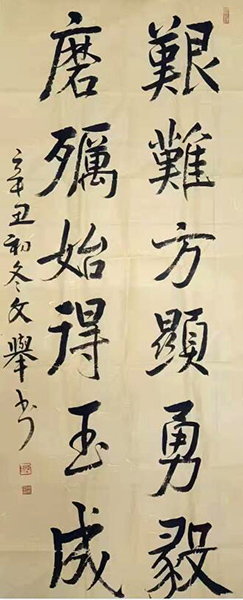 艱難方顯勇毅
磨礪始得玉成
辛丑初冬文舉书